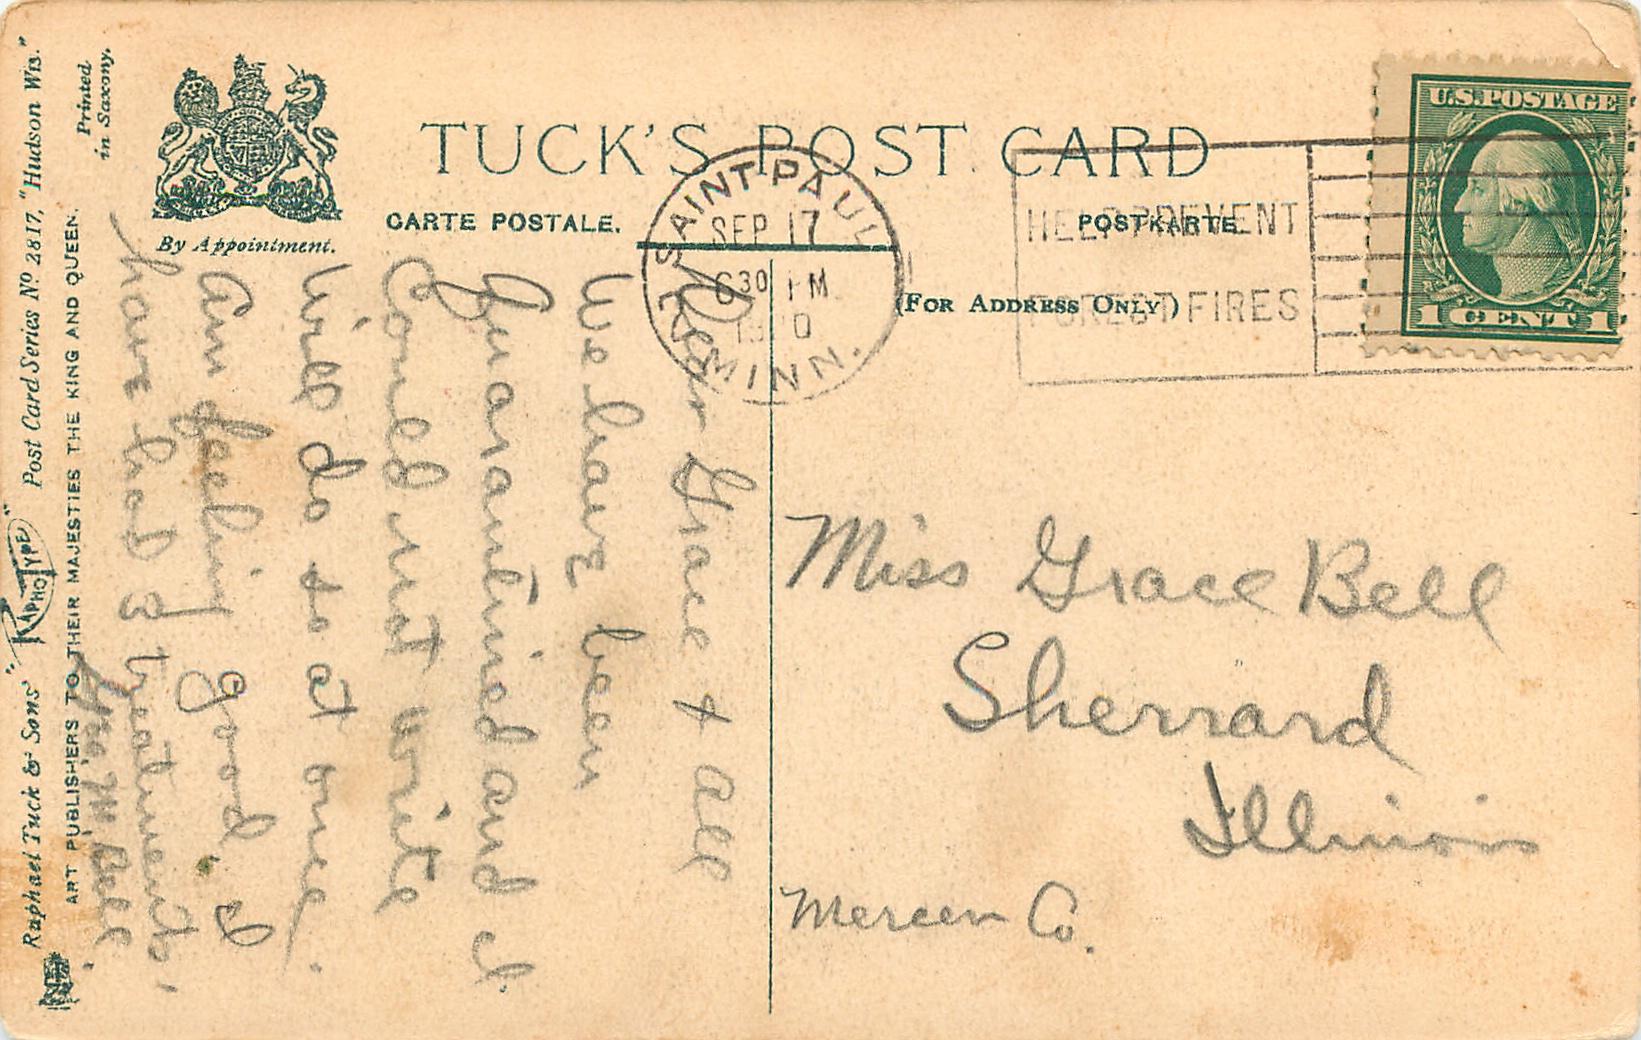 TUCK'S POST CARD
CARTE POSTALE.
POSTKARTE
(FOR ADDRESS ONLY)
By Appointment.
Printed
in Saxony.
Raphael Tuck & Sons' "RAPHOTYPE" Post Card Series Nº 2817, "Hudson Wis."
ART PUBLISHERS TO THEIR MAJESTIES THE KING AND QUEEN.
SAINT PAUL
SEP 17
630 PM
MINN.
HELP PREVENT
FOREST FIRES
U.S. POSTAGE
1 CENT 1
Dear Grace & all
We have been
Quarantined and it
Could not write
Will do so at once.
Am feeling good. I
have had 3 treatments.
M. Bell
Miss Grace Bell
Sherrard
Illinois
Mercer Co.